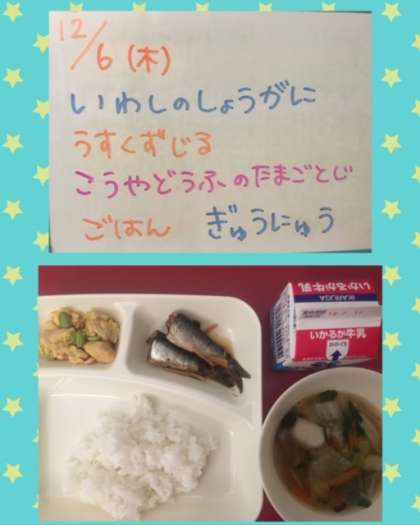 12/6 (木)
いわしのしょうがに
うすくずじる
こうやどうふのたまごとじ
ごはん ぎゅうにゅう
いかるが牛乳
IKARUGA
いかるが牛乳